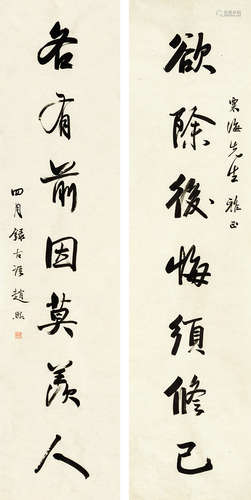 海先生雅正
欲除後悔須修己
各有前因莫羨人
四月錄古語趙熙